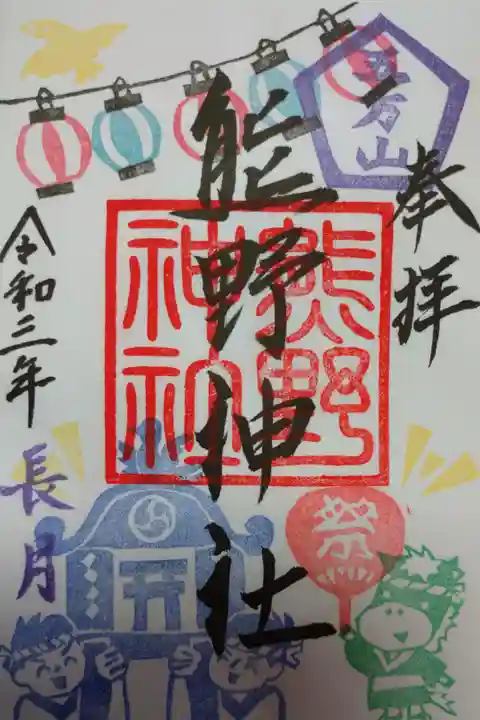 奉拝
五方山
熊野神社
熊野
神社
令和三年
長月
祭